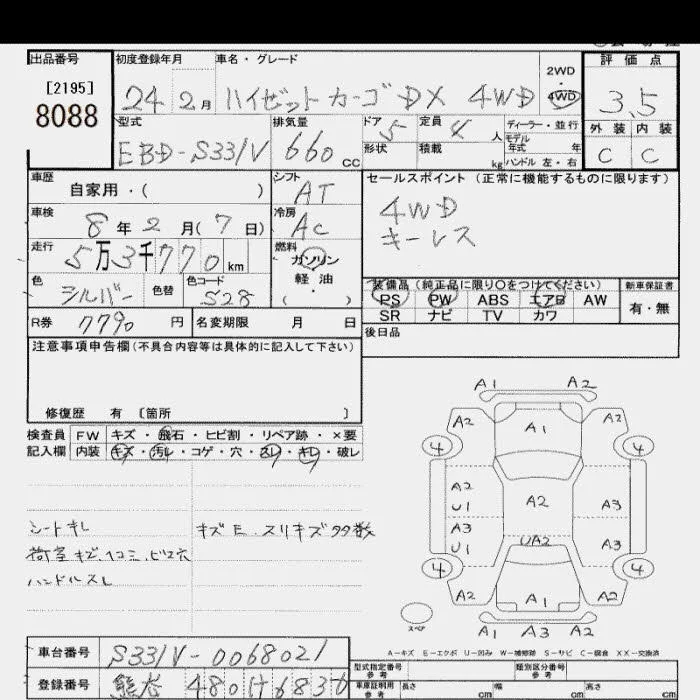 出品番号
[2195]
8088
初度登録年月
24 2月
車名・グレード
ハイゼットカーゴ DX 4WD
2WD
・
4WD
評価点
3.5
外装 内装
C C
型式
EBD-S331V
排気量
660 cc
ドア 5
形状
定員 4 人
積載 kg
ディーラー・並行
モデル
年式 年
ハンドル 左・右
車歴
自家用・( )
シフト
AT
セールスポイント (正常に機能するものに限ります)
4WD
キーレス
車検
8年2月(7日)
冷房
AC
走行
5万3千770km
燃料
ガソリン
軽油
( ・ )
色
シルバー
色替
色コード
S28
装備品(純正品に限り○をつけてください)
PS PW ABS エアB AW
SR ナビ TV カワ
新車保証書
有・無
R券 7790円
名変期限 月 日
後日品
注意事項申告欄(不具合内容等は具体的に記入して下さい)
修復歴 有 〔箇所 〕
検査員
記入欄
FW キズ・飛石・ヒビ割・リペア跡・×要
内装 キズ・汚レ・コゲ・穴・スレ・キレ・破レ
シートキレ
荷室キズ、ヘコミ、ビス穴
ハンドルスレ
キズE.スリキズ多数
A1 A2
A2 A1 A2
4 4
A2
U1
A2
A3
A3
U1
A3
UA2
4 4
A2 A1 A2
スペア
A1 A3 A2
A-キズ E-エクボ U-凹み W-補修跡 S-サビ C-腐食 XX-交換済
車台番号 S331V-0068021
登録番号 熊谷 480け6836
型式指定番号
参考
類別区分番号
参考
車庫証明用
参考
長さ cm 幅 cm 高さ cm